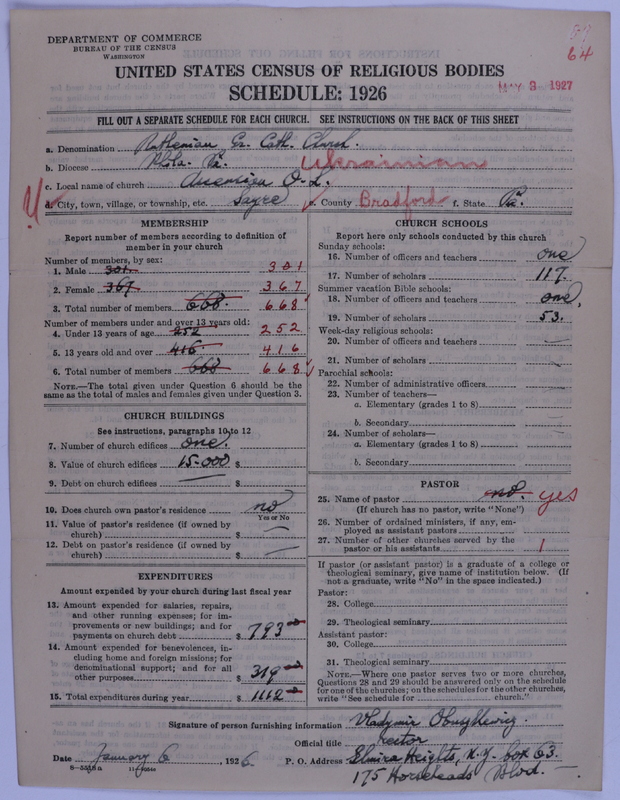 64
DEPARTMENT OF COMMERCE
BUREAU OF THE CENSUS
WASHINGTON
UNITED STATES CENSUS OF RELIGIOUS BODIES
SCHEDULE: 1926
MAY 3 1927
FILL OUT A SEPARATE SCHEDULE FOR EACH CHURCH. SEE INSTRUCTIONS ON THE BACK OF THIS SHEET
a. Denomination Ruthenian Gr. Cath. Church.
b. Diocese Phila. Pa. Ukrainian
c. Local name of church Ascension O. L.
d. City, town, village, or township, etc. Sayre e. County Bradford f. State Pa.
MEMBERSHIP
Report number of members according to definition of
member in your church
Number of members, by sex:
1. Male 301. 301
2. Female 367 367
3. Total number of members 668. 668
Number of members under and over 13 years old:
4. Under 13 years of age 252 252
5. 13 years old and over 416. 416
6. Total number of members 668 668
NOTE.—The total given under Question 6 should be the
same as the total of males and females given under Question 3.
CHURCH BUILDINGS
See instructions, paragraphs 10 to 12
7. Number of church edifices one.
8. Value of church edifices 15-000 $
9. Debt on church edifices — $
10. Does church own pastor's residence no
Yes or No
11. Value of pastor's residence (if owned by
church) $ —
12. Debt on pastor's residence (if owned by
church) $ —
EXPENDITURES
Amount expended by your church during last fiscal year
13. Amount expended for salaries, repairs,
and other running expenses; for im-
provements or new buildings; and for
payments on church debt $ 793 00
14. Amount expended for benevolences, in-
cluding home and foreign missions; for
denominational support; and for all
other purposes $ 319 00
15. Total expenditures during year $ 1112 00
CHURCH SCHOOLS
Report here only schools conducted by this church
Sunday schools:
16. Number of officers and teachers one
17. Number of scholars 117.
Summer vacation Bible schools:
18. Number of officers and teachers one,
19. Number of scholars 53.
Week-day religious schools:
20. Number of officers and teachers —
21. Number of scholars —
Parochial schools:
22. Number of administrative officers
23. Number of teachers—
a. Elementary (grades 1 to 8)
b. Secondary
24. Number of scholars—
a. Elementary (grades 1 to 8)
b. Secondary
PASTOR
25. Name of pastor no. yes
(If church has no pastor, write "None")
26. Number of ordained ministers, if any, em-
ployed as assistant pastors
27. Number of other churches served by the
pastor or his assistants 1
If pastor (or assistant pastor) is a graduate of a college or
theological seminary, give name of institution below. (If
not a graduate, write "No" in the space indicated.)
Pastor:
28. College
29. Theological seminary
Assistant pastor:
30. College
31. Theological seminary
NOTE.—Where one pastor serves two or more churches,
Questions 28 and 29 should be answered only on the schedule
for one of the churches; on the schedules for the other churches,
write "See schedule for church."
Signature of person furnishing information Vladymir
Official title rector
Date January 6, 1926 P. O. Address Elmira Heights, N.Y. box 63.
175 Horseheads Blvd.